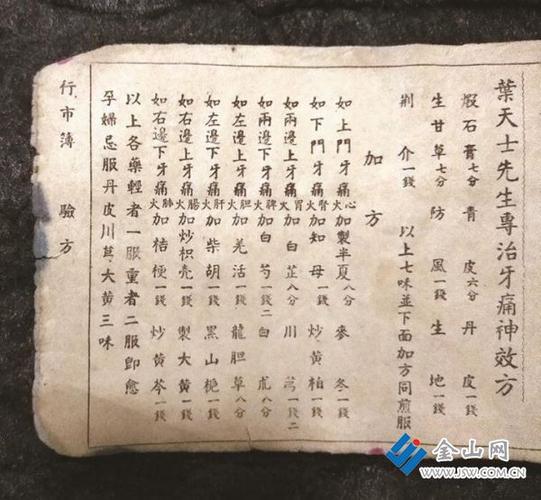 葉天士先生專治牙痛神效方
煆石膏七分 青皮六分 丹皮一錢
生甘草七分 防風一錢 生地一錢
荊介一錢 以上七味並下面加方同煎服
加方
如上門牙痛心火加製半夏八分 麥冬一錢
如下門牙痛腎火加知母一錢 炒黃柏一錢
如兩邊上牙痛胃火加白芷八分 川芎一錢二
如兩邊下牙痛脾火加白芍一錢二 白虎八分
如左邊上牙痛胆火加羌活一錢 龍胆草八分
如左邊下牙痛肝火加柴胡一錢 黑山梔一錢
如右邊上牙痛腸火加炒枳壳一錢 製大黃一錢
如右邊下牙痛肺火加桔梗一錢 炒黃芩一錢
以上各藥輕者一服重者二服即愈
孕婦忌服丹皮川芎大黃三味
行市簿 驗方
金山网
WWW.JSW.COM.CN